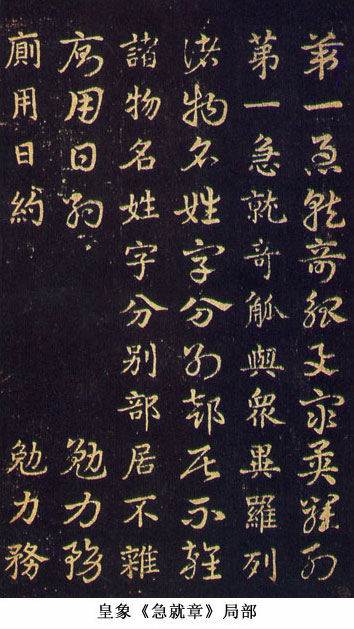 第一急就奇觚與衆異羅列
第一急就奇觚與衆異羅列
諸物名姓字分別部居不雜
諸物名姓字分別部居不雜
廁用日約 勉力務
廁用日約 勉力務
皇象《急就章》局部